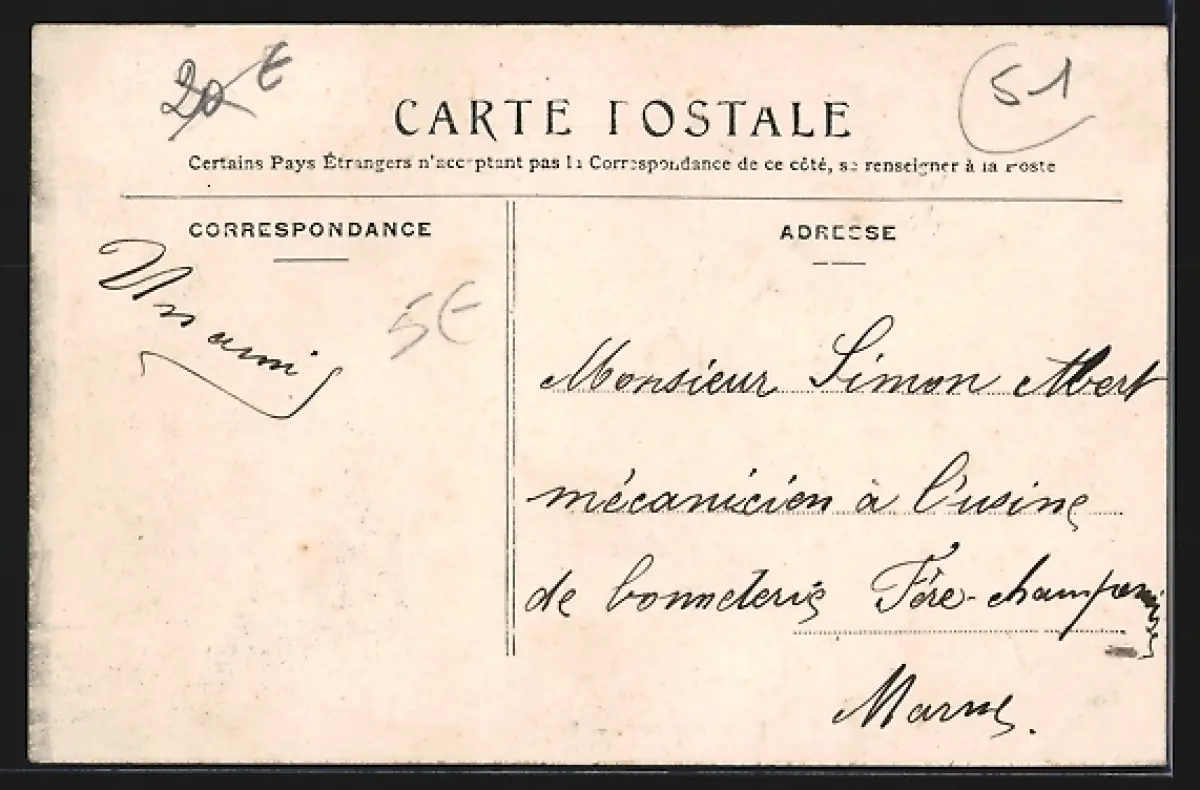 20 €
51
CARTE POSTALE
Certains Pays Étrangers n'acceptent pas la Correspondance de ce côté, se renseigner à la Poste
CORRESPONDANCE
Un ami
5€
ADRESSE
Monsieur Simon Albert
mécanicien à l'usine
de bonneterie Fère-champenoise
Marne.